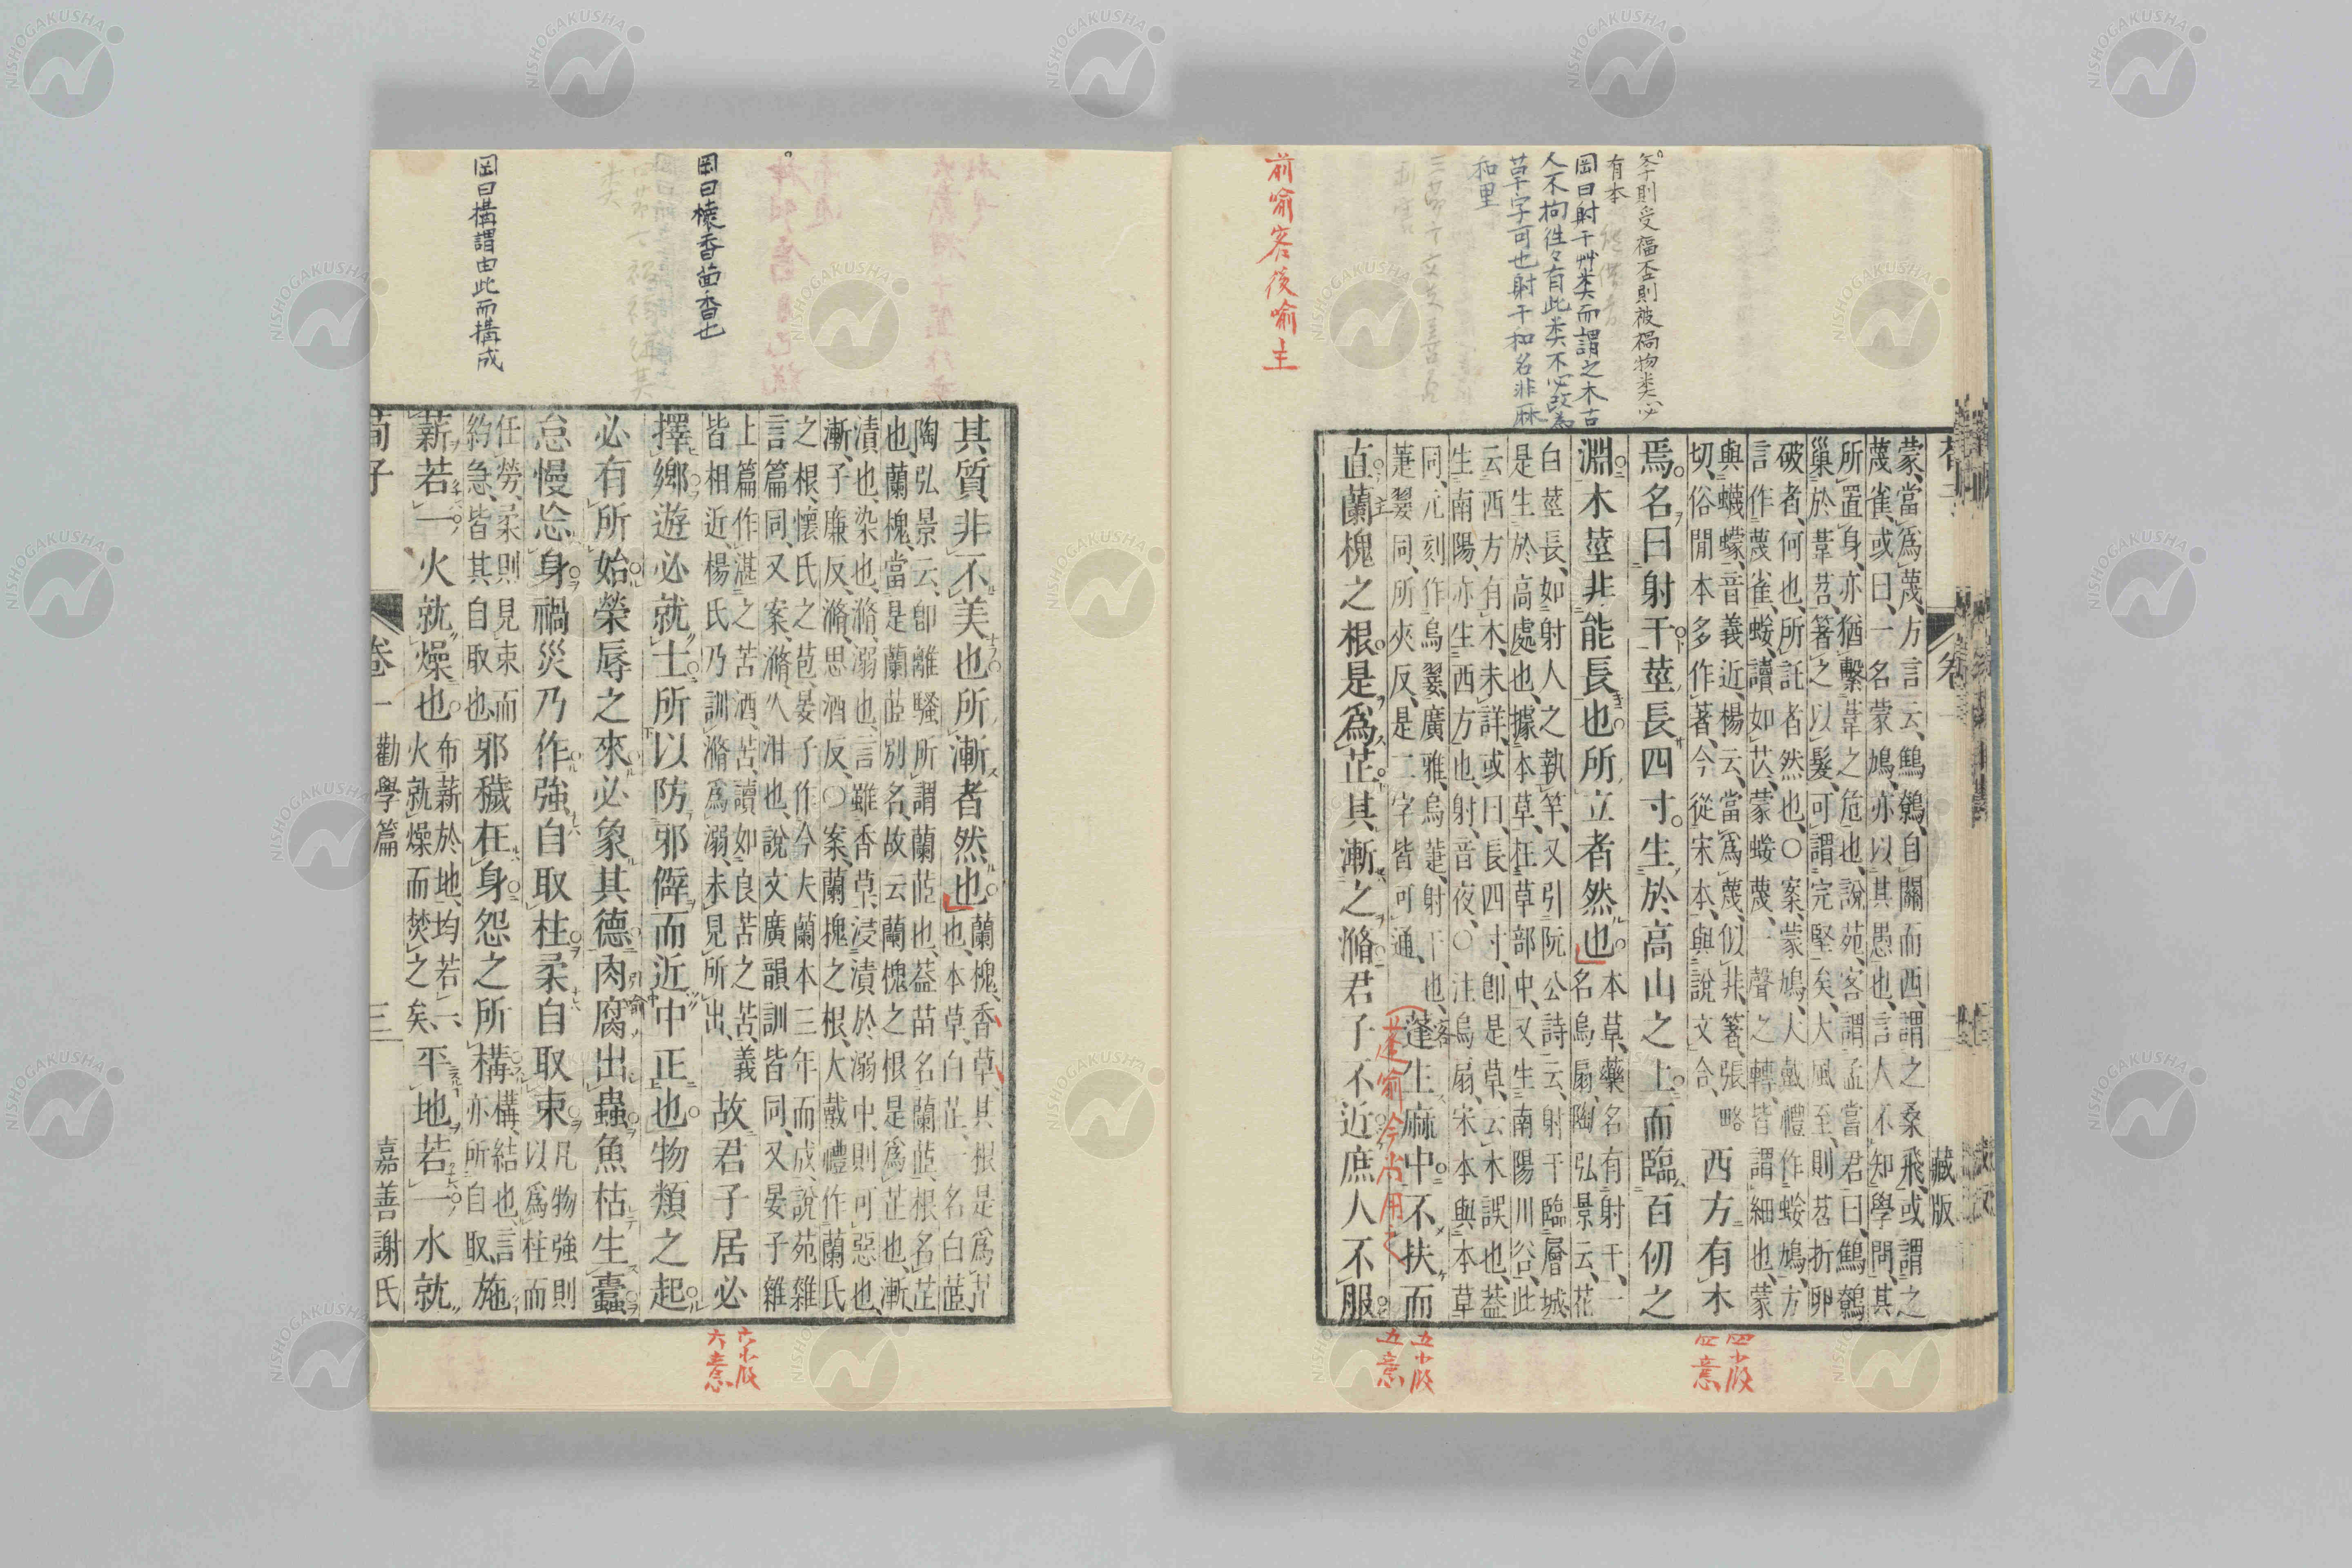 前喻客後喻主
夲則受福否則被禍物类必
有本
岡曰射干艸类而謂之木古
人不拘徃々有此类不必改為
草字可也射干和名非厤
和里
藏版
蒙、當爲蔑、方言云、鷦鷯、自關而西、謂之桑飛、或謂之
蔑雀、或曰、一名蒙鳩、亦以其愚也、言人不知學問、其
所置身、亦猶繫葦之危也、說苑、客謂孟嘗君曰、鷦鷯
巢於葦苕、箸之以髮、可謂完堅矣、大風至、則苕折卵
破者、何也、所託者然也、〇案、蒙鳩、大戴禮作蝬鳩、方
言作蔑雀、蝬、讀如苁、蒙蝬蔑、一聲之轉、皆謂細也、蒙
與蠛蠓、音義近、楊云、當爲蔑、似非、箸、張略
切、俗閒本多作著、今從宋本、與說文合、
西方有木
焉名曰射干莖長四寸生於高山之上而臨百仞之
淵木莖非能長也所立者然也
本草、藥名有射干、一
名烏扇、陶弘景云、花
白莖長、如射人之執竿、又引阮公詩云、射干臨層城、
是生於高處也、據本草、在草部中、又生南陽川谷、此
云西方有木、未詳、或曰、長四寸、卽是草、云木誤也、蓋
生南陽、亦生西方也、射、音夜、〇注烏扇、宋本與本草
同、元刻作烏翣、廣雅、烏萐、射干也、
萐翣同、所夾反、是二字皆可通、
蓬生麻中不扶而
客
蓬喻今尚用之
直蘭槐之根是爲芷其漸之滫君子不近庶人不服
主
四小段
四意
五小段
五意
岡曰櫰香茴香也
岡曰構謂由此而構成
其質非不美也所漸者然也
蘭槐、香草、其根是爲芷
也、本草、白芷、一名白茝、
陶弘景云、卽離騷所謂蘭茝也、蓋苗名蘭茝、根名芷
也、蘭槐、當是蘭茝別名、故云蘭槐之根是爲芷也、漸、
漬也、染也、滫、溺也、言雖香草、浸漬於溺中、則可惡也、
漸、子廉反、滫、思酒反、〇案、蘭槐之根、大戴禮作蘭氏
之根、懷氏之苞、晏子作今夫蘭本三年而成、說苑雜
言篇同、又案、滫、久泔也、說文廣韻訓皆同、又晏子雜
上篇作湛之苦酒、苦、讀如良苦之苦、義
皆相近、楊氏乃訓滫爲溺、未見所出、
故君子居必
擇鄉遊必就士所以防邪僻而近中正也物類之起
必有所始榮辱之來必象其德肉腐出蟲魚枯生蠹
引喻
怠慢忘身禍災乃作強自取柱柔自取束
凡物強則
以爲柱而
任勞、柔則見束而
約急、皆其自取也、
邪穢在身怨之所構
構、結也、言
亦所自取、
施
薪若一火就燥也
布薪於地、均若一、
火就燥而焚之矣、
平地若一水就
荀子
卷一
勸學篇
三
嘉善謝氏
六小段
六意